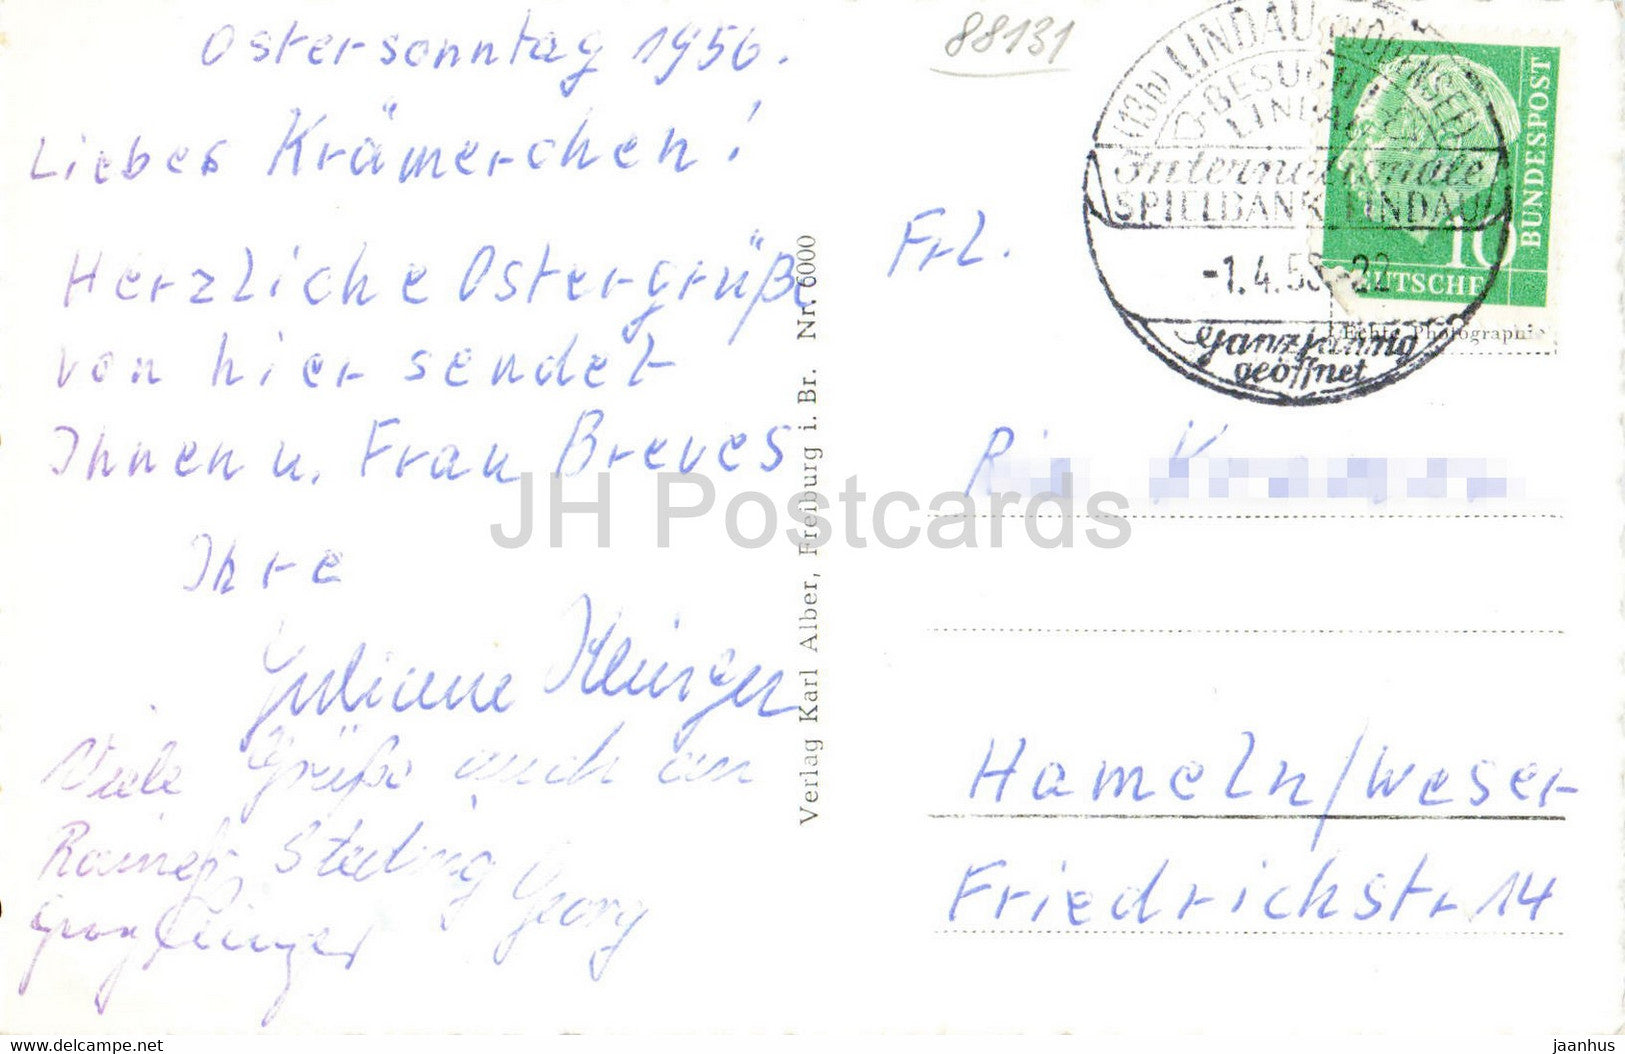 Ostersonntag 1956.
Liebes Krämerchen!
Herzliche Ostergrüße
von hier sendet
Ihnen u. Frau Breves
Ihre
Juliane
Viele Grüße auch an
Georg
88131
Verlag Karl Alber, Freiburg i. Br. Nr. 6000
(13b) LINDAU (BODENSEE)
BESUCH
LINDAU
Internationale
SPIELBANK LINDAU
-1.4.56-22
Ganzjährig
geöffnet
BUNDESPOST
10
DEUTSCHE
Echte Photographie
Frl.
Hameln/Weser
Friedrichstr 14
JH Postcards
delcampe.net
jaanhus